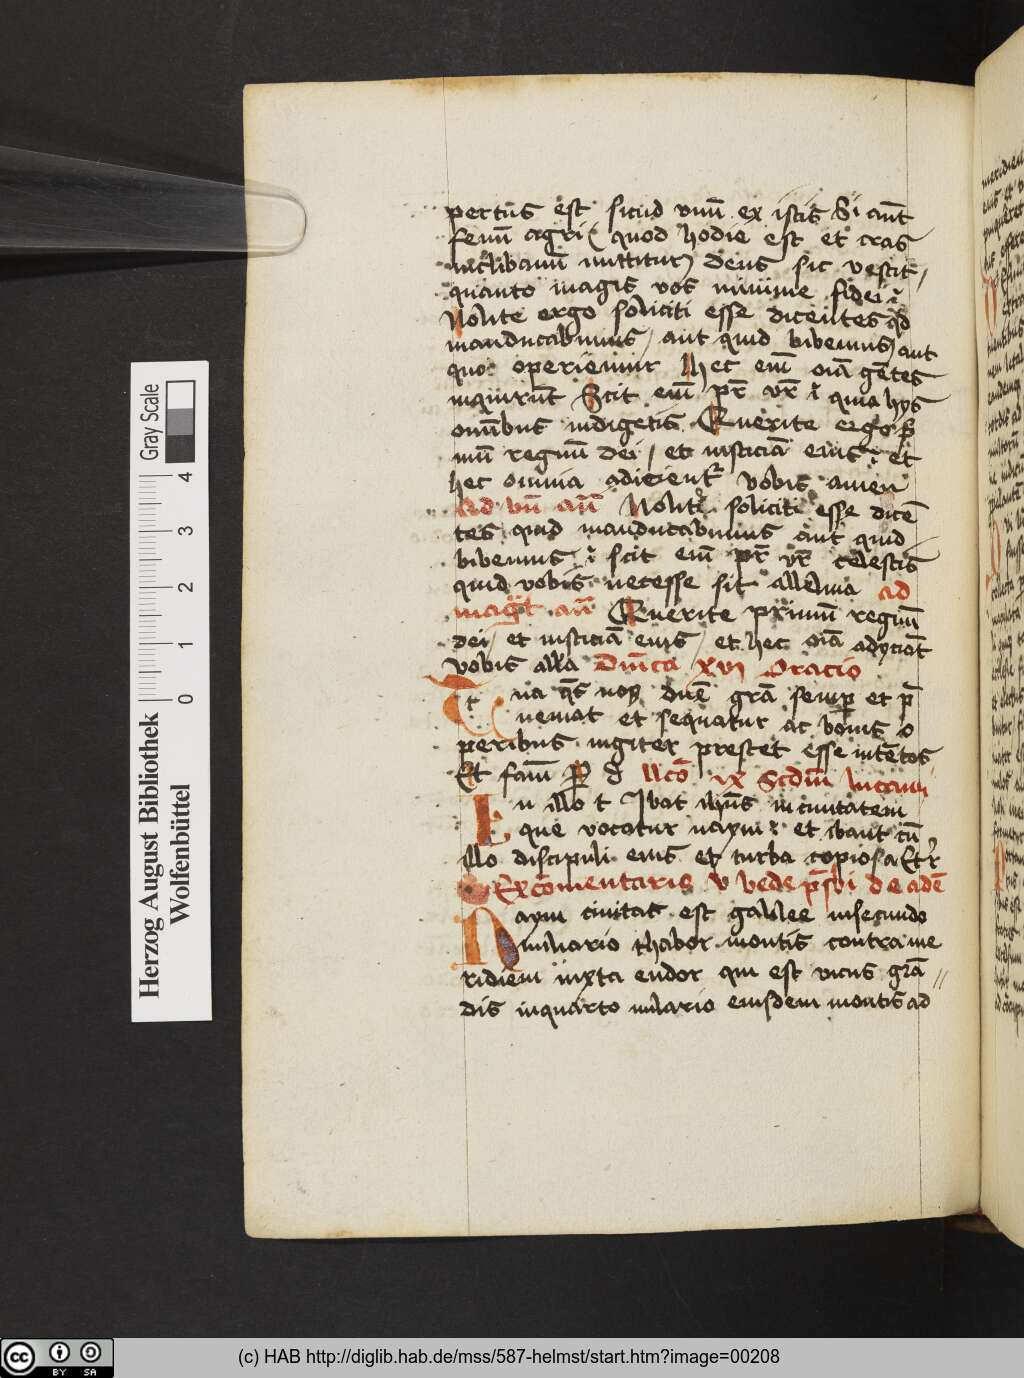 pertus est sicud vnū ex istis Si aūt
fenū agri quod hodie est et cras
in clibanū mittitur deus sic vestit
quanto magis vos minime fidei
Nolite ergo soliciti esse dicentes qd
manducabimus aut quid bibemus aut
quo operiemur Hec eīm oīa gētes
inquirūt Scit eīm pr̄ vr̄ quia hys
omībus indigetis Querite ergo p̄
mū regnū dei et iusticiā eius et
hec omnia adicientur vobis amen
Ad vn̄ an̄ Nolite soliciti esse dicē
tes quid manducabimus aut quid
bibemus scit eīm pr̄ vr̄ celestis
quid vobis necesse sit allēluia ad
magt an̄ Querite primū regnū
dei et iusticiā eius et hec oīa adyciāt
vobis alla Dnīca xvi Oracio
Tua qs noꝫ dnē grā semꝑ et p̄
ueniat et sequatur ac bonis o
peribus iugiter prestet esse intētos
Et fam̄
ix Scdm̄ lucam
In illo t Ibat ihūs in ciuitatem
que vocatur naym et ibant cū
illo discipuli eius et turba copiosa Et r̄
Ex cōmentaris v bede p̄sbi de adē
Naym ciuitas est galilee in secundo
miliario thabor montis contra me
ridiem iuxta endor qui est vicus grā
dis in quarto milario eiusdem montis ad
Gray Scale
0 1 2 3 4
Herzog August Bibliothek
Wolfenbüttel
cc BY SA
(c) HAB http://diglib.hab.de/mss/587-helmst/start.htm?image=00208